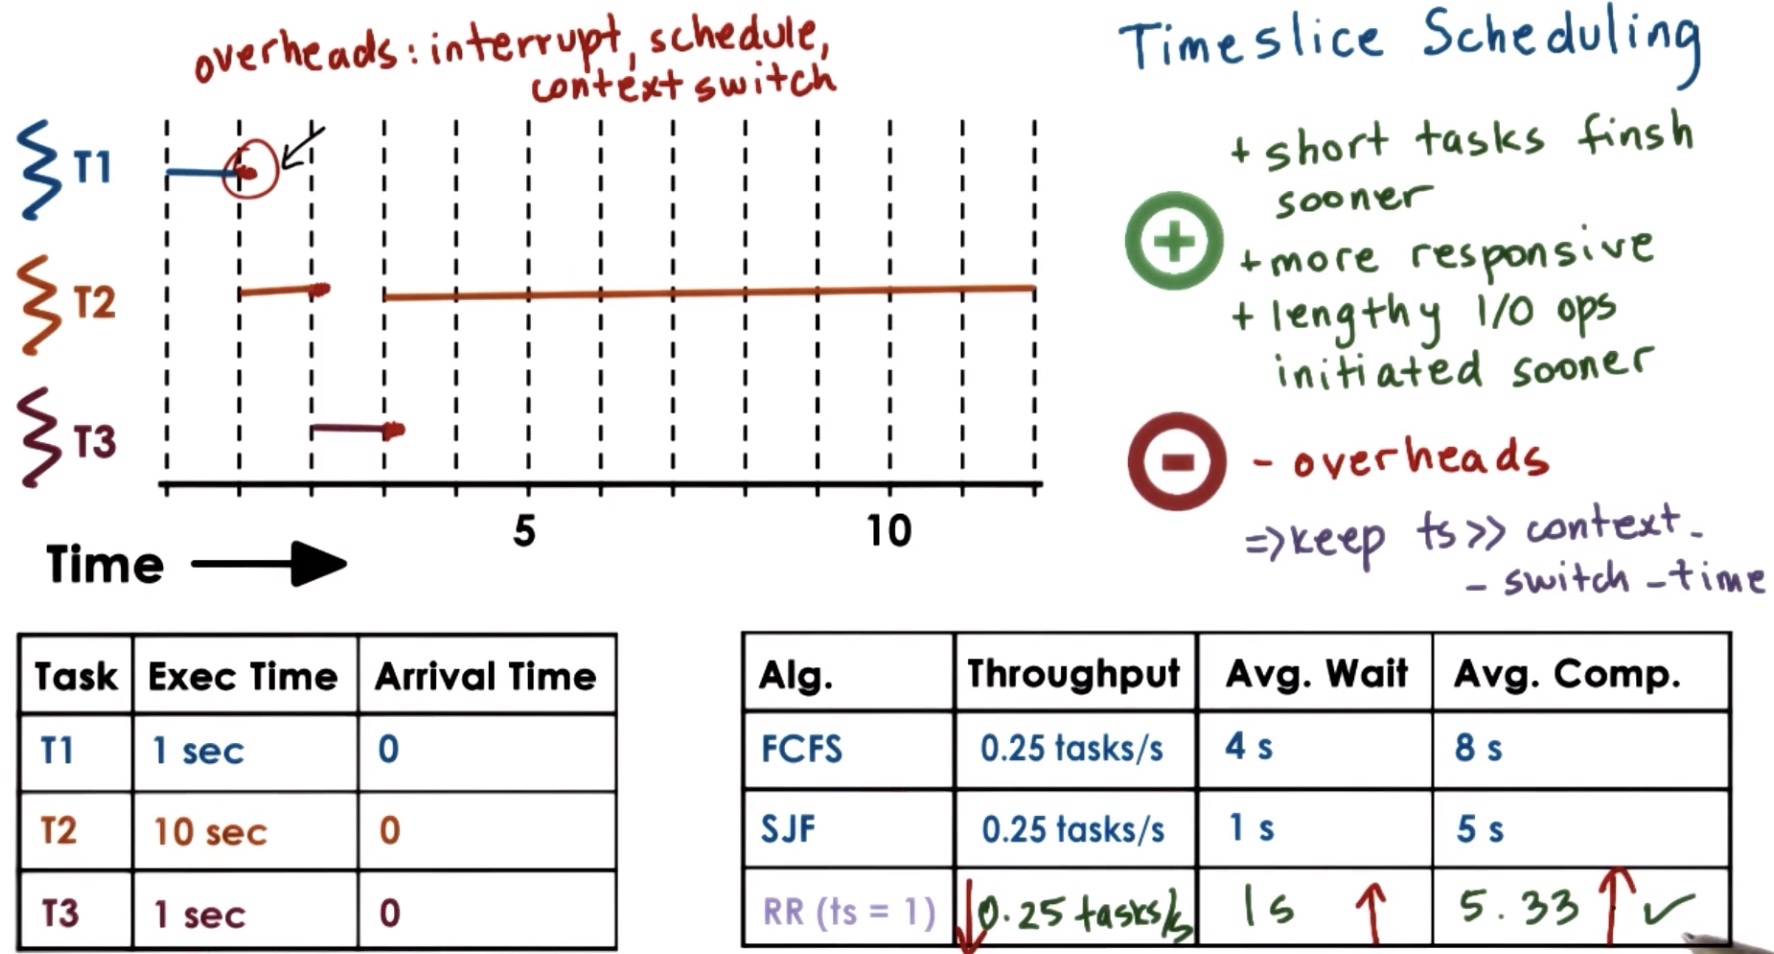 overheads: interrupt, schedule,
context switch
Timeslice Scheduling
+ short tasks finsh
sooner
+ more responsive
+ lengthy I/O ops
initiated sooner
- overheads
=> keep ts >> context-
- switch - time
T1
T2
T3
5 10
Time
Task Exec Time Arrival Time
T1 1 sec 0
T2 10 sec 0
T3 1 sec 0
Alg. Throughput Avg. Wait Avg. Comp.
FCFS 0.25 tasks/s 4 s 8 s
SJF 0.25 tasks/s 1 s 5 s
RR (ts = 1) ↓ 0.25 tasks/s 1s ↑ 5.33 ↑ ✓